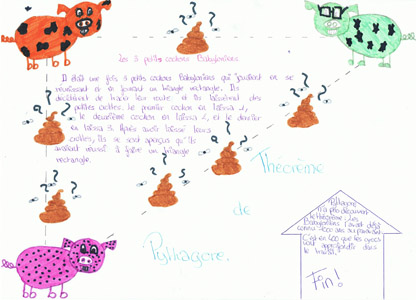 Les 3 petits cochons Babyloniens
Il était une fois 3 petits cochons Babyloniens qui jouaient en se
réunissant et en formant un triangle rectangle. Ils
décidèrent de tracer leur route et ils laissèrent des
petites crottes. Le premier cochon en laissa 4,
le deuxième cochon en laissa 2, et le dernier
en laissa 3. Après avoir laissé leurs
crottes, ils se sont aperçus qu'ils
avaient réussi à faire un triangle
rectangle.
Théorème
de
Pythagore.
Pythagore
n'a pas découvert
le théorème. Les
Babyloniens l'avait déjà
connu
C'est en que les grecs
dans
Fin!